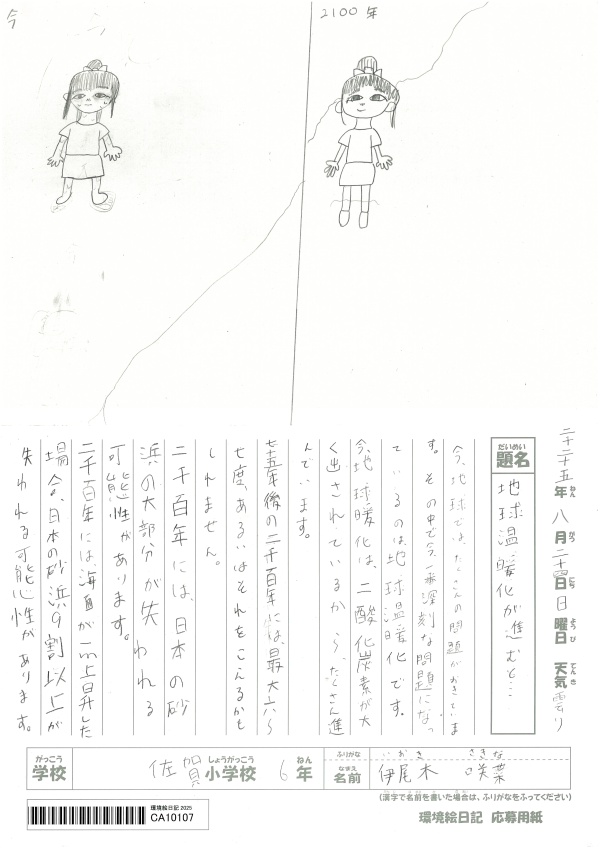 今
2100年
二千二十五年八月二十四日日曜日 天気 曇り
ねん がつ にち ようび てんき
だいめい
題名
地球温暖化が進むと…
今、地球では、たくさんの問題がおきていま
す。その中で今、一番深刻な問題になっ
ているのは地球温暖化です。
今、地球暖化は、二酸化炭素が大
く出されているから、たくさん進
んでいます。
七十五年後の二千百年には、最大六〜
七度、あるいはそれをこえるかも
しれません。
二千百年には、日本の砂
浜の大部分が失われる
可能性があります。
二千百年には、海面が一m上昇した
場合、日本の砂浜の9割以上が
失われる可能性があります。
がっこう
学校
佐賀 小学校 6年
しょうがっこう ねん
ふりがな
いおき さきな
なまえ
名前
伊尾木 咲葉
(漢字で名前を書いた場合は、ふりがなをふってください)
環境絵日記 2025
CA10107
環境絵日記 応募用紙